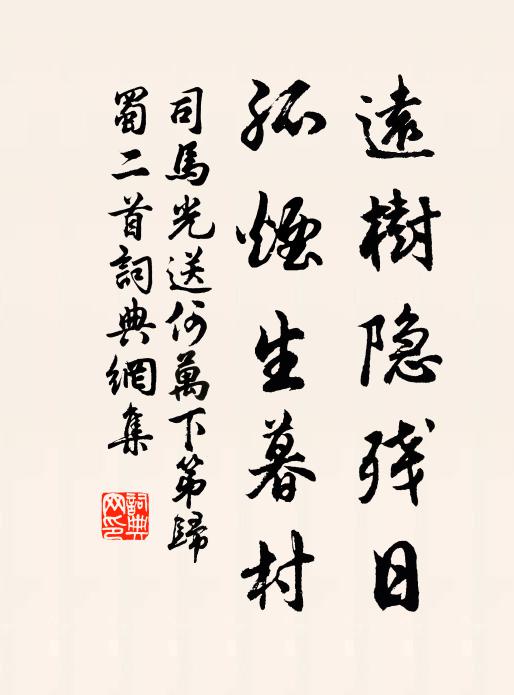 遠樹隐残日
孤煙生暮村
司馬光送何萬下第歸
蜀二首詞典網集
詞典
网印